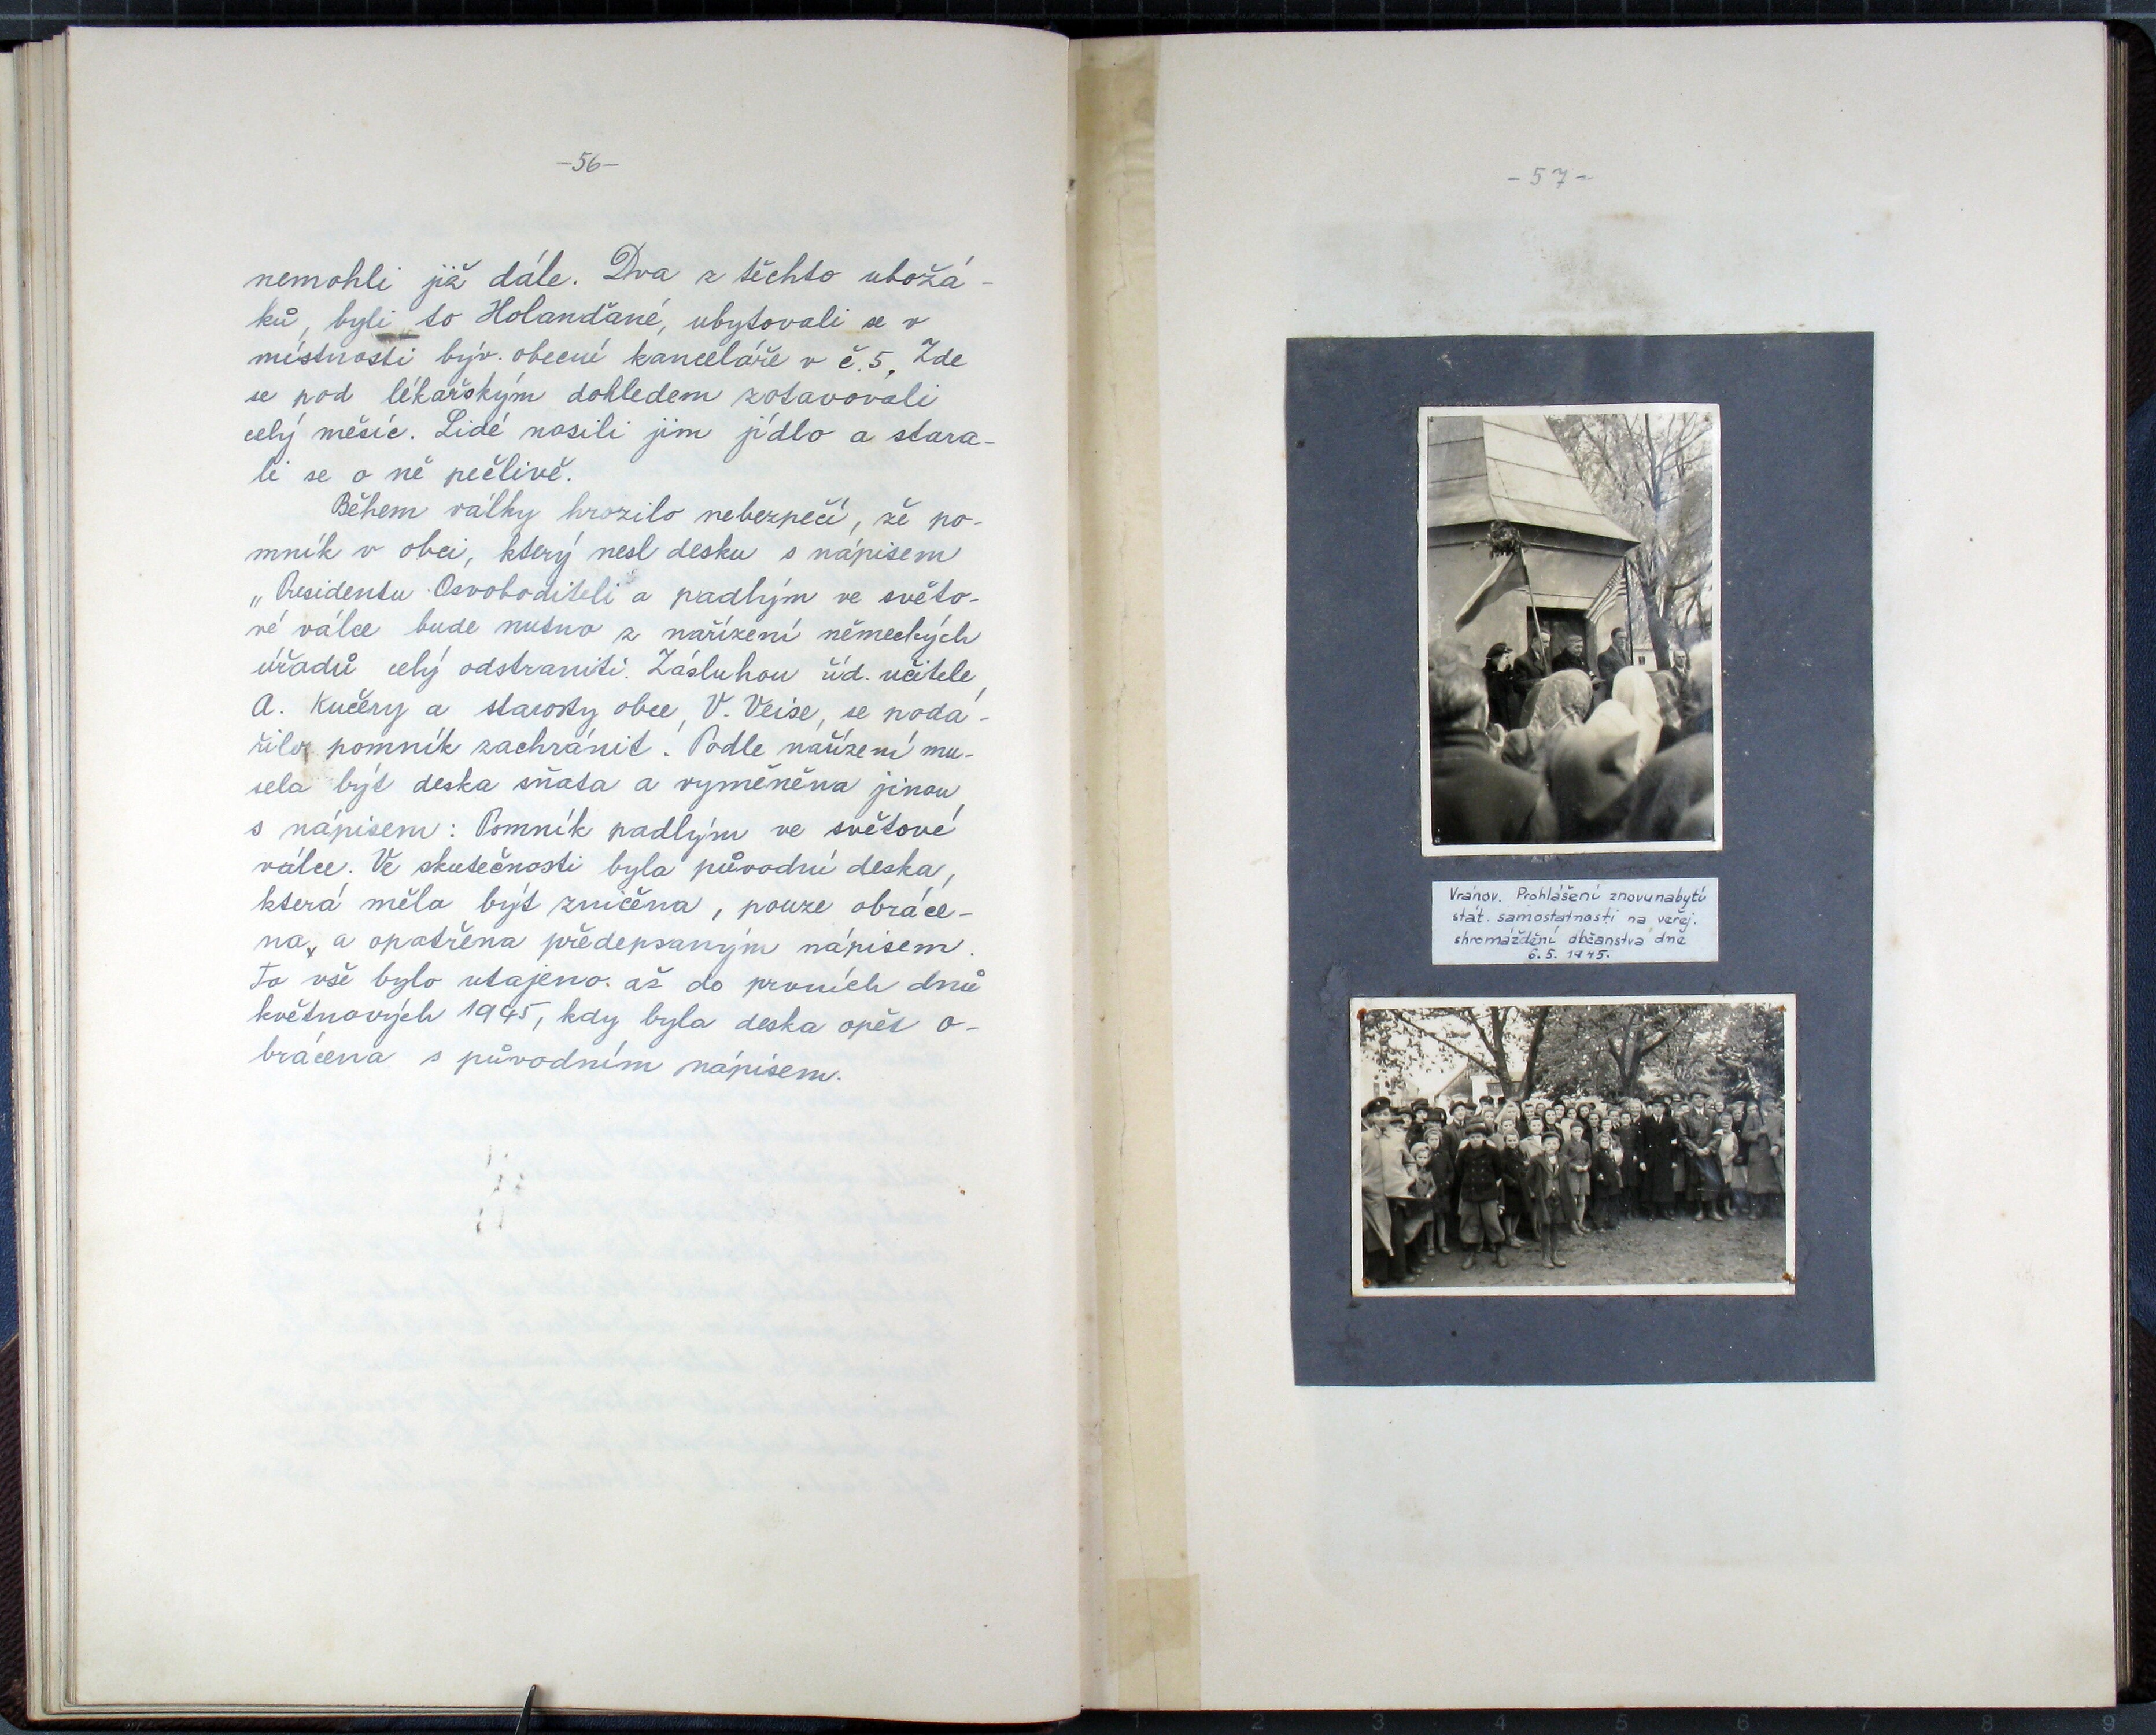 -56-
nemohli již dále. Dva z těchto ubožá-
ků, byli to Holanďané, ubytovali se v
místnosti býv. obecní kanceláře v č. 5. Zde
se pod lékařským dohledem zotavovali
celý měsíc. Lidé nosili jim jídlo a stara-
li se o ně pečlivě.
Během války hrozilo nebezpečí, že po-
mník v obci, který nesl desku s nápisem
„Presidentu Osvoboditeli a padlým ve světo-
vé válce bude nutno z nařízení německých
úřadů celý odstraniti. Zásluhou říd. učitele
A. Kučery a starosty obce, V. Veise, se poda-
řilo pomník zachránit. Podle nařízení mu-
sela být deska sňata a vyměněna jinou
s nápisem: Pomník padlým ve světové
válce. Ve skutečnosti byla původní deska,
která měla být zničena, pouze obráce-
na, a opatřena předepsaným nápisem.
To vše bylo utajeno až do prvních dnů
květnových 1945, kdy byla deska opět o-
brácena s původním nápisem.
-57-
Vranov. Prohlášení znovunabytí
stát. samostatnosti na veřej.
shromáždění občanstva dne
6.5. 1945.
1 2 3 4 5 6 7 8 9